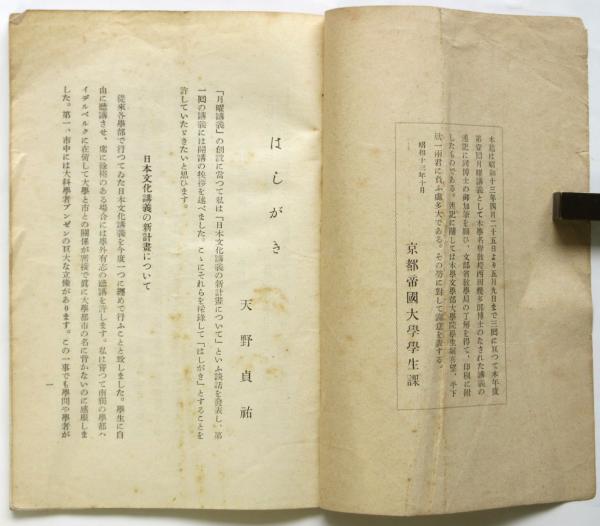 本篇は昭和十三年四月二十五日より五月九日まで三囘に亙つて本年度
第壹囘月曜講義として本學名譽敎授西田幾多郞博士のなされた講義の
速記に同博士の御加筆を願ひ、文部省敎學局の了解を得て、印刷に附
したものである。速記に關しては本學文學部大學院學生
欣一兩君に負ふ處多大である。その勞に對して謝意を表する。
昭和十三年十月
京都帝國大學學生課
はしがき
天野貞祐
「月曜講義」の創設に當つて私は「日本文化講義の新計畫について」といふ談話を發表し、第
一囘の講義には開講の挨拶を述べました。こゝにそれらを採錄して「はしがき」とすることを
許していたゞきたいと思ひます。
日本文化講義の新計畫について
從來各學部で行つてゐた日本文化講義を今度一つに纏めて行ふことと致しました。學生に自
由に聽講させ、席に餘裕のある場合には學外有志の聽講を許します。私は嘗つて南獨の學都ハ
イデルベルクに在留して大學と市との關係が密接で眞に大學都市の名に背かないのに感服しま
した。第一、市中には大科學者ブンゼンの巨大な立像があります。この一事でも學問や學者が
一